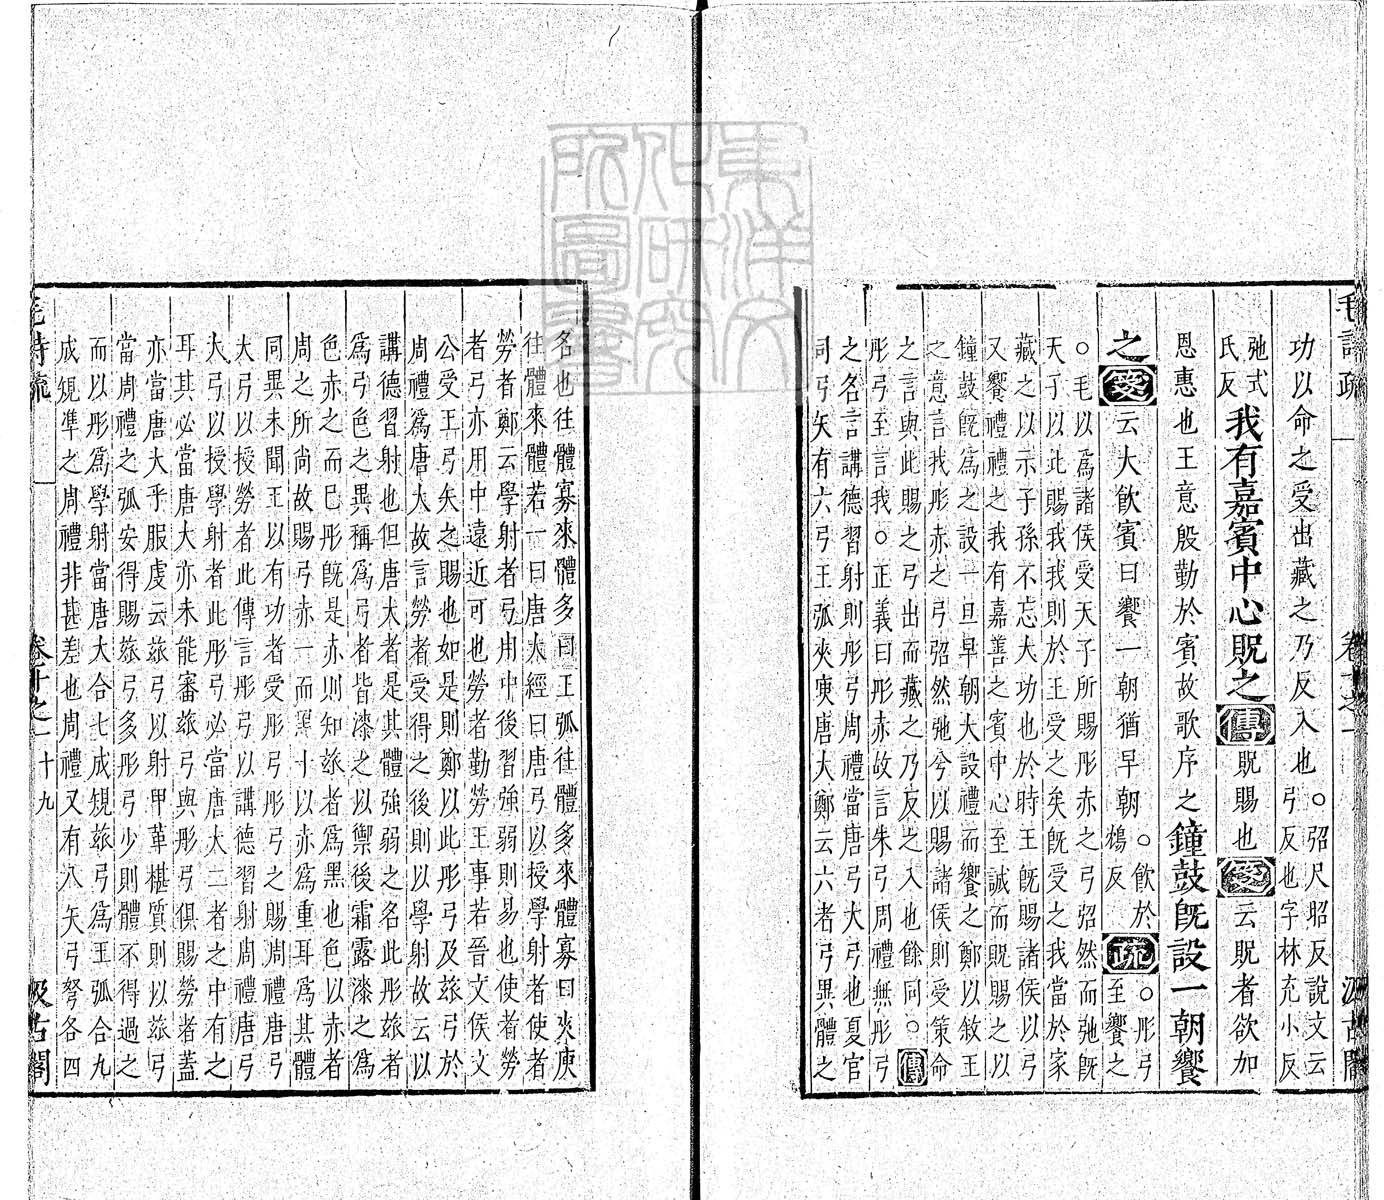 毛詩疏
卷十之一
汲古閣
功以命之受出藏之乃反入也○弨尺昭反說文云
弓反也字林充小反
弛式
氏反
我有嘉賓中心貺之傳貺賜也箋云貺者欲加
恩惠也王意殷勤於賓故歌序之鐘鼓既設一朝饗
之箋云大飲賓曰饗一朝猶早朝○飲於
鴆反
疏
○彤弓
至饗之
○毛以爲諸侯受天子所賜彤赤之弓弨然而弛既
天子以此賜我我則於王受之矣既受之我當於家
藏之以示子孫不忘大功也於時王既賜諸侯以弓
又饗禮禮之我有嘉善之賓中心至誠而貺賜之以
鐘鼓既爲之設一旦早朝大設禮而饗之鄭以敘王
之意言我彤赤之弓弨然弛兮以賜諸侯則受策命
之言與此賜之弓出而藏之乃反之入也餘同○傳
彤弓至言我○正義曰彤赤故言朱弓周禮無彤弓
之名言講德習射則彤弓周禮當唐弓大弓也夏官
司弓矢有六弓王弧夾庾唐大鄭云六者弓異體之
名也往體寡來體多曰王弧往體多來體寡曰夾庾
往體來體若一曰唐大經曰唐弓以授學射者使者
勞者鄭云學射者弓用中後習強弱則易也使者勞
者弓亦用中遠近可也勞者勤勞王事若晉文侯文
公受王弓矢之賜也如是則鄭以此彤弓及玈弓於
周禮爲唐大故言勞者受得之後則以學射故云以
講德習射也但唐大者是其體強弱之名此彤玈者
爲弓色之異稱爲弓者皆漆之以禦後霜露漆之爲
色赤之而巳彤既是赤則知玈者爲黑也色以赤者
周之所尚故賜弓赤一而黑十以赤爲重耳爲其體
同異未聞王以有功者受彤弓彤弓之賜周禮唐弓
大弓以授勞者此傳言彤弓以講德習射周禮唐弓
大弓以授學射者此彤弓必當唐大二者之中有之
耳其必當唐大亦未能審玈弓與彤弓俱賜勞者蓋
亦當唐大乎服虔云玈弓以射甲革椹質則以玈弓
當周禮之弧安得賜玈弓多彤弓少則體不得過之
而以彤爲學射當唐大合七成規玈弓爲王弧合九
成規準之周禮非甚差也周禮又有八矢弓弩各四
毛詩疏
卷十之一
十九
汲古閣
東洋文化研究所圖書